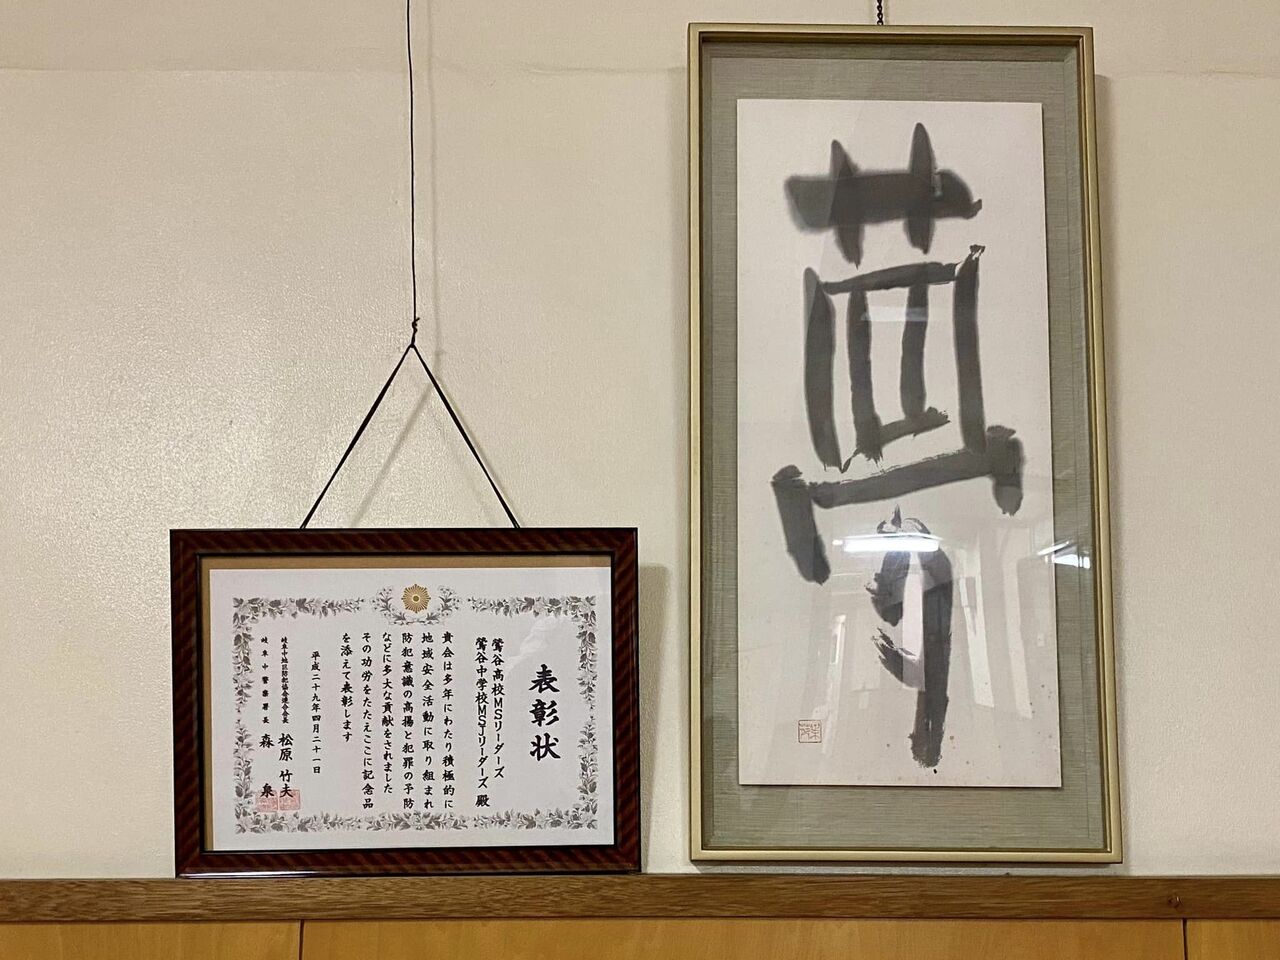 表彰状
鶯谷高校MSリーダーズ
鶯谷中学校MSJリーダーズ 殿
貴会は多年にわたり積極的に
地域安全活動に取り組まれ
防犯意識の高揚と犯罪の予防
などに多大な貢献をされました
その功労をたたえここに記念品
を添えて表彰します
平成二十九年四月二十一日
岐阜中地区防犯協会連合会長 松原竹夫
岐阜中警察署長 森泉
夢